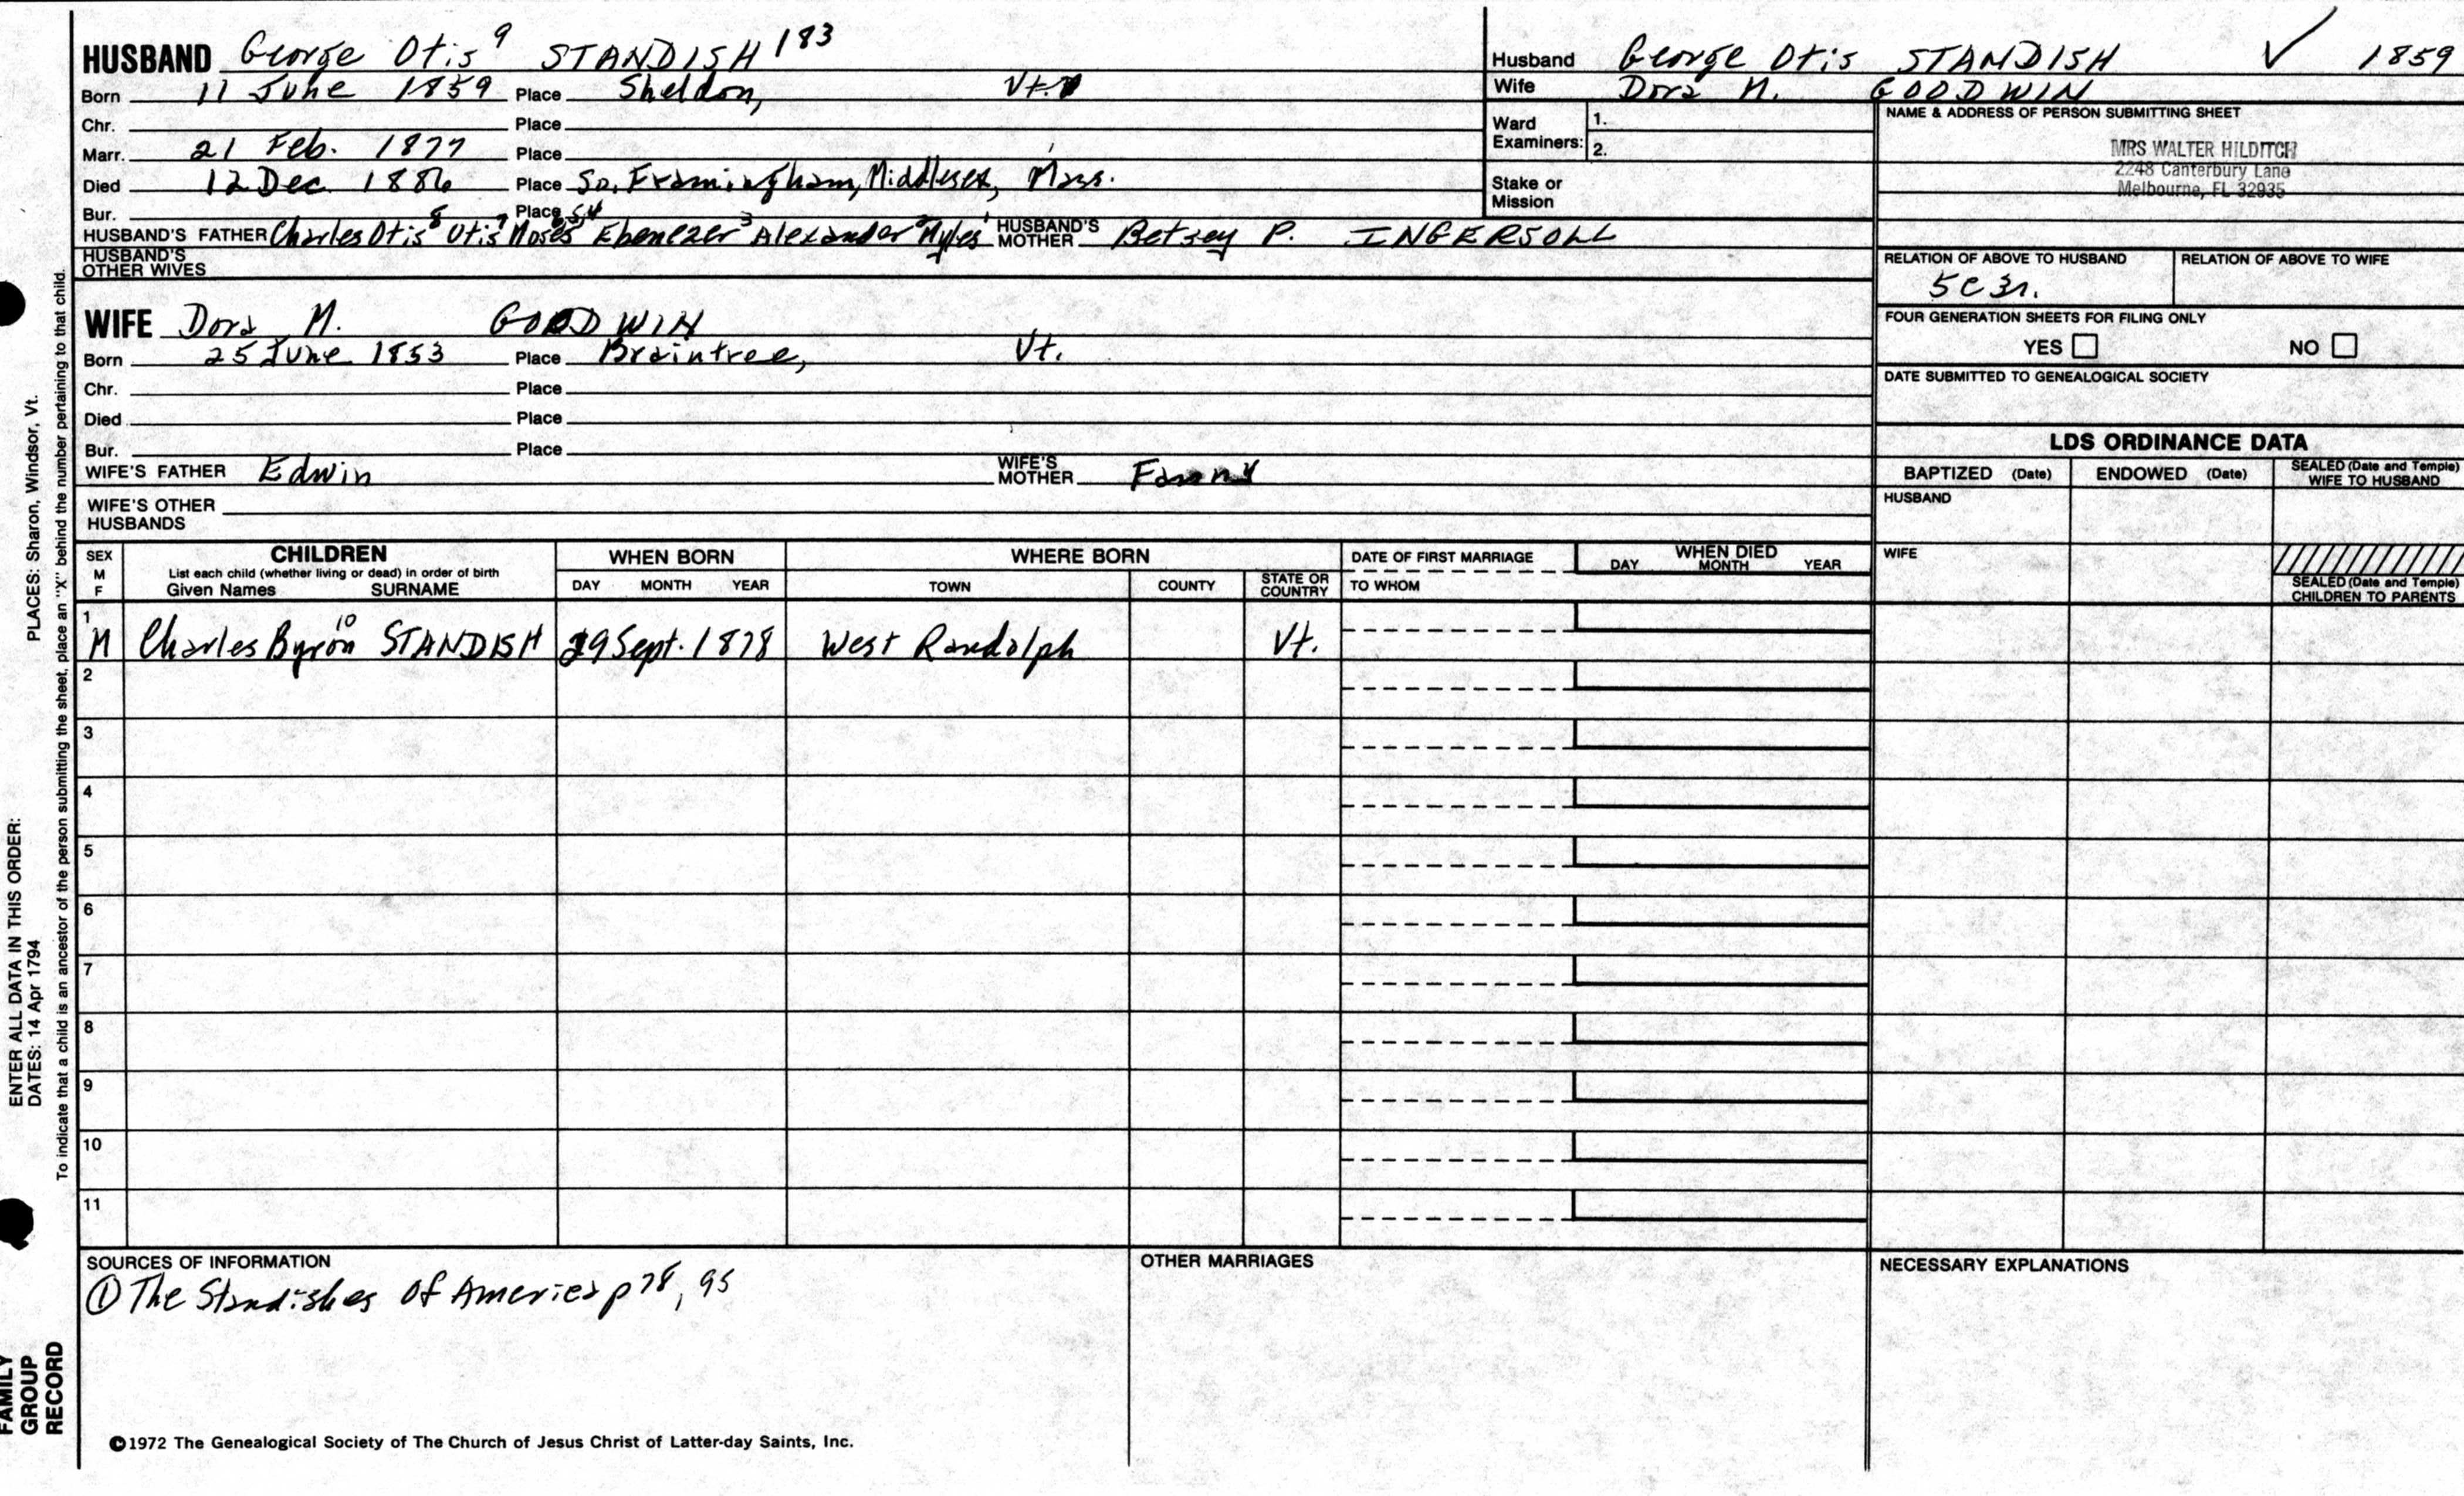 HUSBAND George Otis⁹ STANDISH 183
Born 11 June 1859 Place Sheldon, Vt.
Chr. Place
Marr. 21 Feb. 1877 Place
Died 12 Dec. 1886 Place So. Framingham, Middlesex, Mass.
Bur. Place
HUSBAND'S FATHER Charles Otis⁸ Otis⁷ Moses⁶,⁵,⁴ Ebenezer³ Alexander² Myles¹ HUSBAND'S MOTHER Betsey P. INGERSOLL
HUSBAND'S OTHER WIVES
WIFE Dora M. GOODWIN
Born 25 June 1853 Place Braintree, Vt.
Chr. Place
Died Place
Bur. Place
WIFE'S FATHER Edwin WIFE'S MOTHER Fanny
WIFE'S OTHER HUSBANDS
Husband George Otis STANDISH ✓ 1859
Wife Dora M. GOODWIN
Ward Examiners: 1.
2.
Stake or Mission
NAME & ADDRESS OF PERSON SUBMITTING SHEET
MRS WALTER HILDITCH
2248 Canterbury Lane
Melbourne, FL 32935
RELATION OF ABOVE TO HUSBAND RELATION OF ABOVE TO WIFE
5c3r.
FOUR GENERATION SHEETS FOR FILING ONLY
YES NO
DATE SUBMITTED TO GENEALOGICAL SOCIETY
LDS ORDINANCE DATA
BAPTIZED (Date) ENDOWED (Date) SEALED (Date and Temple) WIFE TO HUSBAND
HUSBAND
WIFE
SEALED (Date and Temple) CHILDREN TO PARENTS
SEX M F CHILDREN WHEN BORN WHERE BORN DATE OF FIRST MARRIAGE WHEN DIED
List each child (whether living or dead) in order of birth
Given Names SURNAME DAY MONTH YEAR TOWN COUNTY STATE OR COUNTRY TO WHOM DAY MONTH YEAR
1
M Charles Byron¹⁰ STANDISH 29 Sept. 1878 West Randolph Vt.
2
3
4
5
6
7
8
9
10
11
SOURCES OF INFORMATION OTHER MARRIAGES NECESSARY EXPLANATIONS
① The Standishes Of America p 78, 95
©1972 The Genealogical Society of The Church of Jesus Christ of Latter-day Saints, Inc.
ENTER ALL DATA IN THIS ORDER:
DATES: 14 Apr 1794 PLACES: Sharon, Windsor, Vt.
To indicate that a child is an ancestor of the person submitting the sheet, place an "X" behind the number pertaining to that child.
FAMILY
GROUP
RECORD